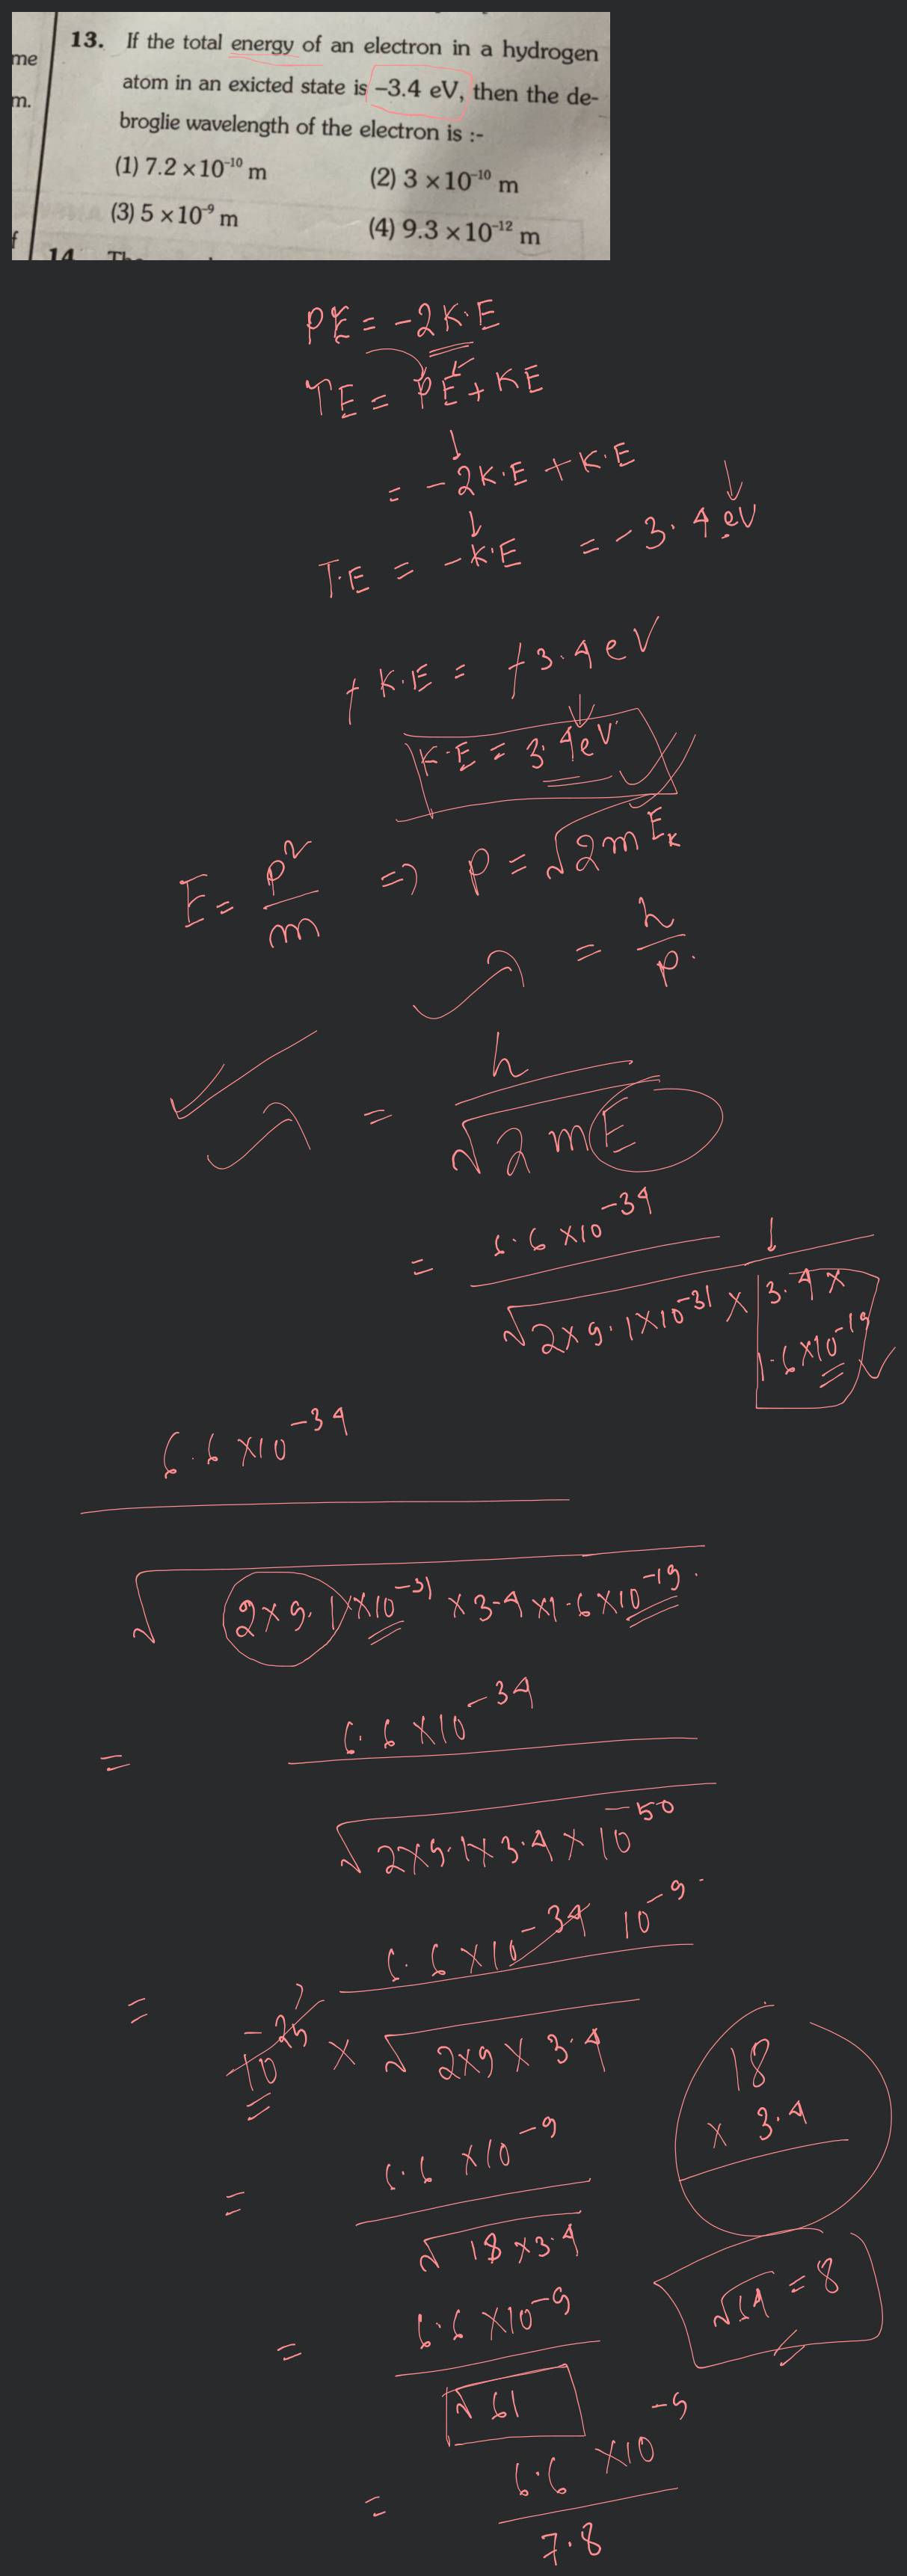 me
m.
f
13. If the total energy of an electron in a hydrogen
atom in an exicted state is -3.4 eV, then the de-
broglie wavelength of the electron is :-
(1) 7.2 ×10⁻¹⁰ m (2) 3 ×10⁻¹⁰ m
(3) 5 ×10⁻⁹ m (4) 9.3 ×10⁻¹² m
14.
PE = -2K.E
TE = PE + KE
= -2K.E + K.E
T.E = -K.E = -3.4 eV
+ K.E = +3.4 eV
K.E = 3.4eV
E = p²/m => p = √2mEₖ
λ = h/p.
λ = h/√2mE
= 6.6 ×10⁻³⁴/√2×9.1×10⁻³¹ × 3.4 × 1.6×10⁻¹⁹
6.6 ×10⁻³⁴
√2×9.1×10⁻³¹ ×3.4×1.6×10⁻¹⁹
= 6.6 ×10⁻³⁴/√2×9.1×3.4×10⁻⁵⁰
= 6.6 ×10⁻³⁴ 10⁻⁹/10⁻²⁵ × √2×9×3.4
18
× 3.4
= 6.6 ×10⁻⁹/√18×3.4
√64 = 8
= 6.6 ×10⁻⁹/√61
= 6.6 ×10⁻⁹/7.8